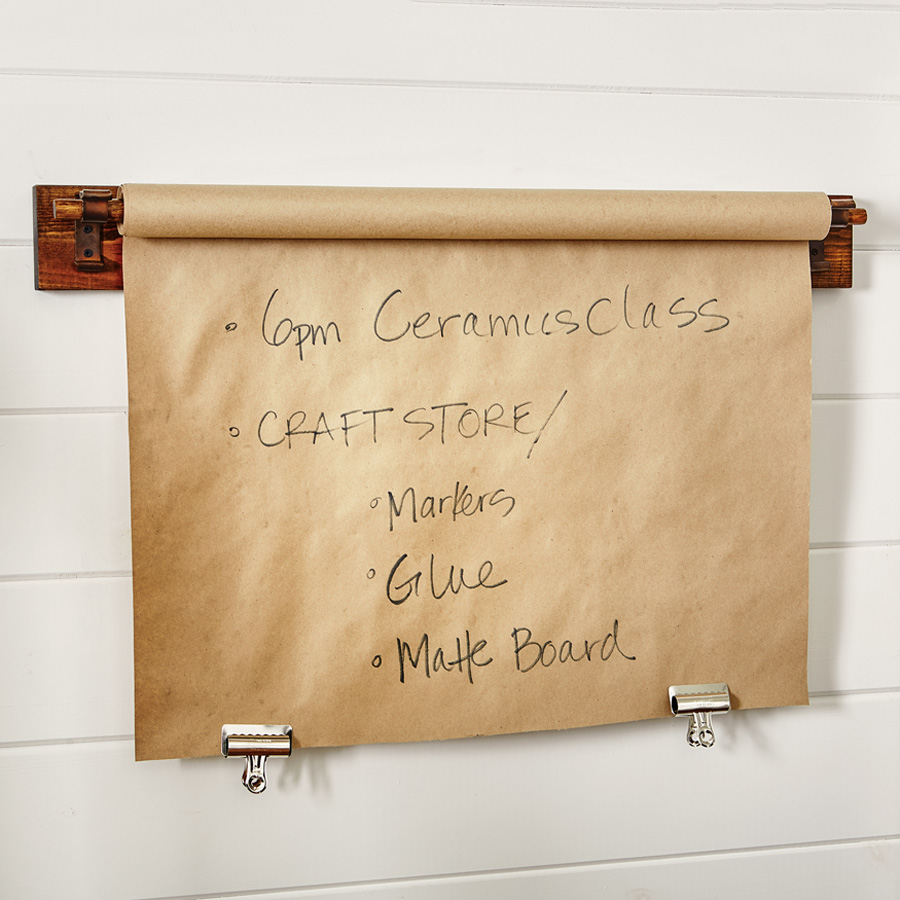 • 6pm Ceramics Class
• CRAFT STORE/
• Markers
• Glue
• Matte Board